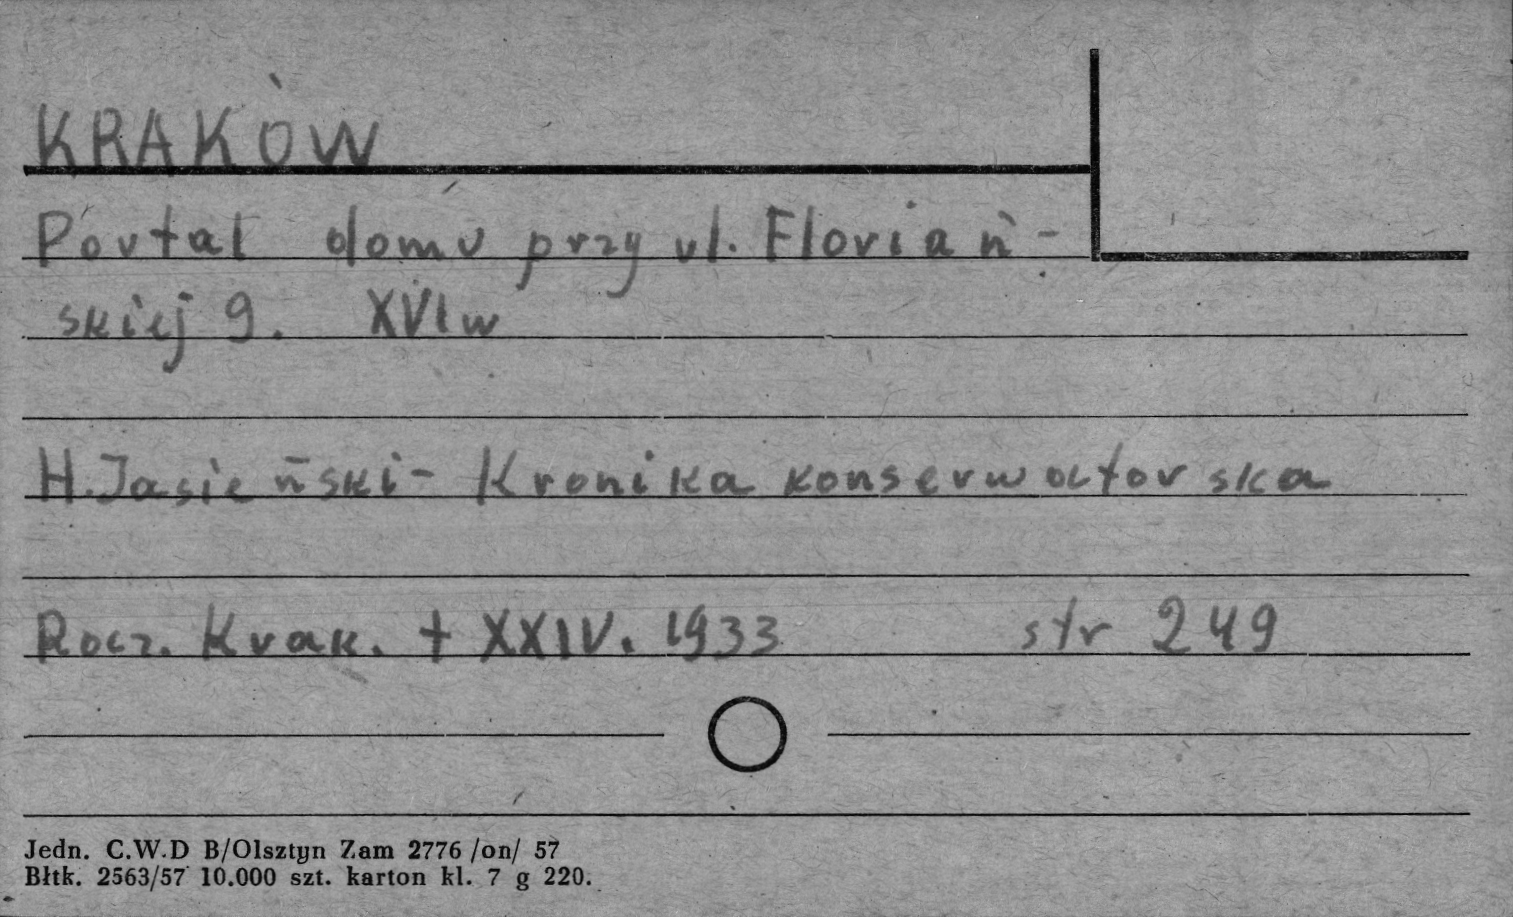 KRAKÓW
Portal domu przy ul. Floriań-
skiej 9. XVI w
H. Jasieński - Kronika konserwatorska
Rocz. Krak. t XXIV. 1933 str 249
Jedn. C.W.D B/Olsztyn Zam 2776 /on/ 57
Błtk. 2563/57 10.000 szt. karton kl. 7 g 220.